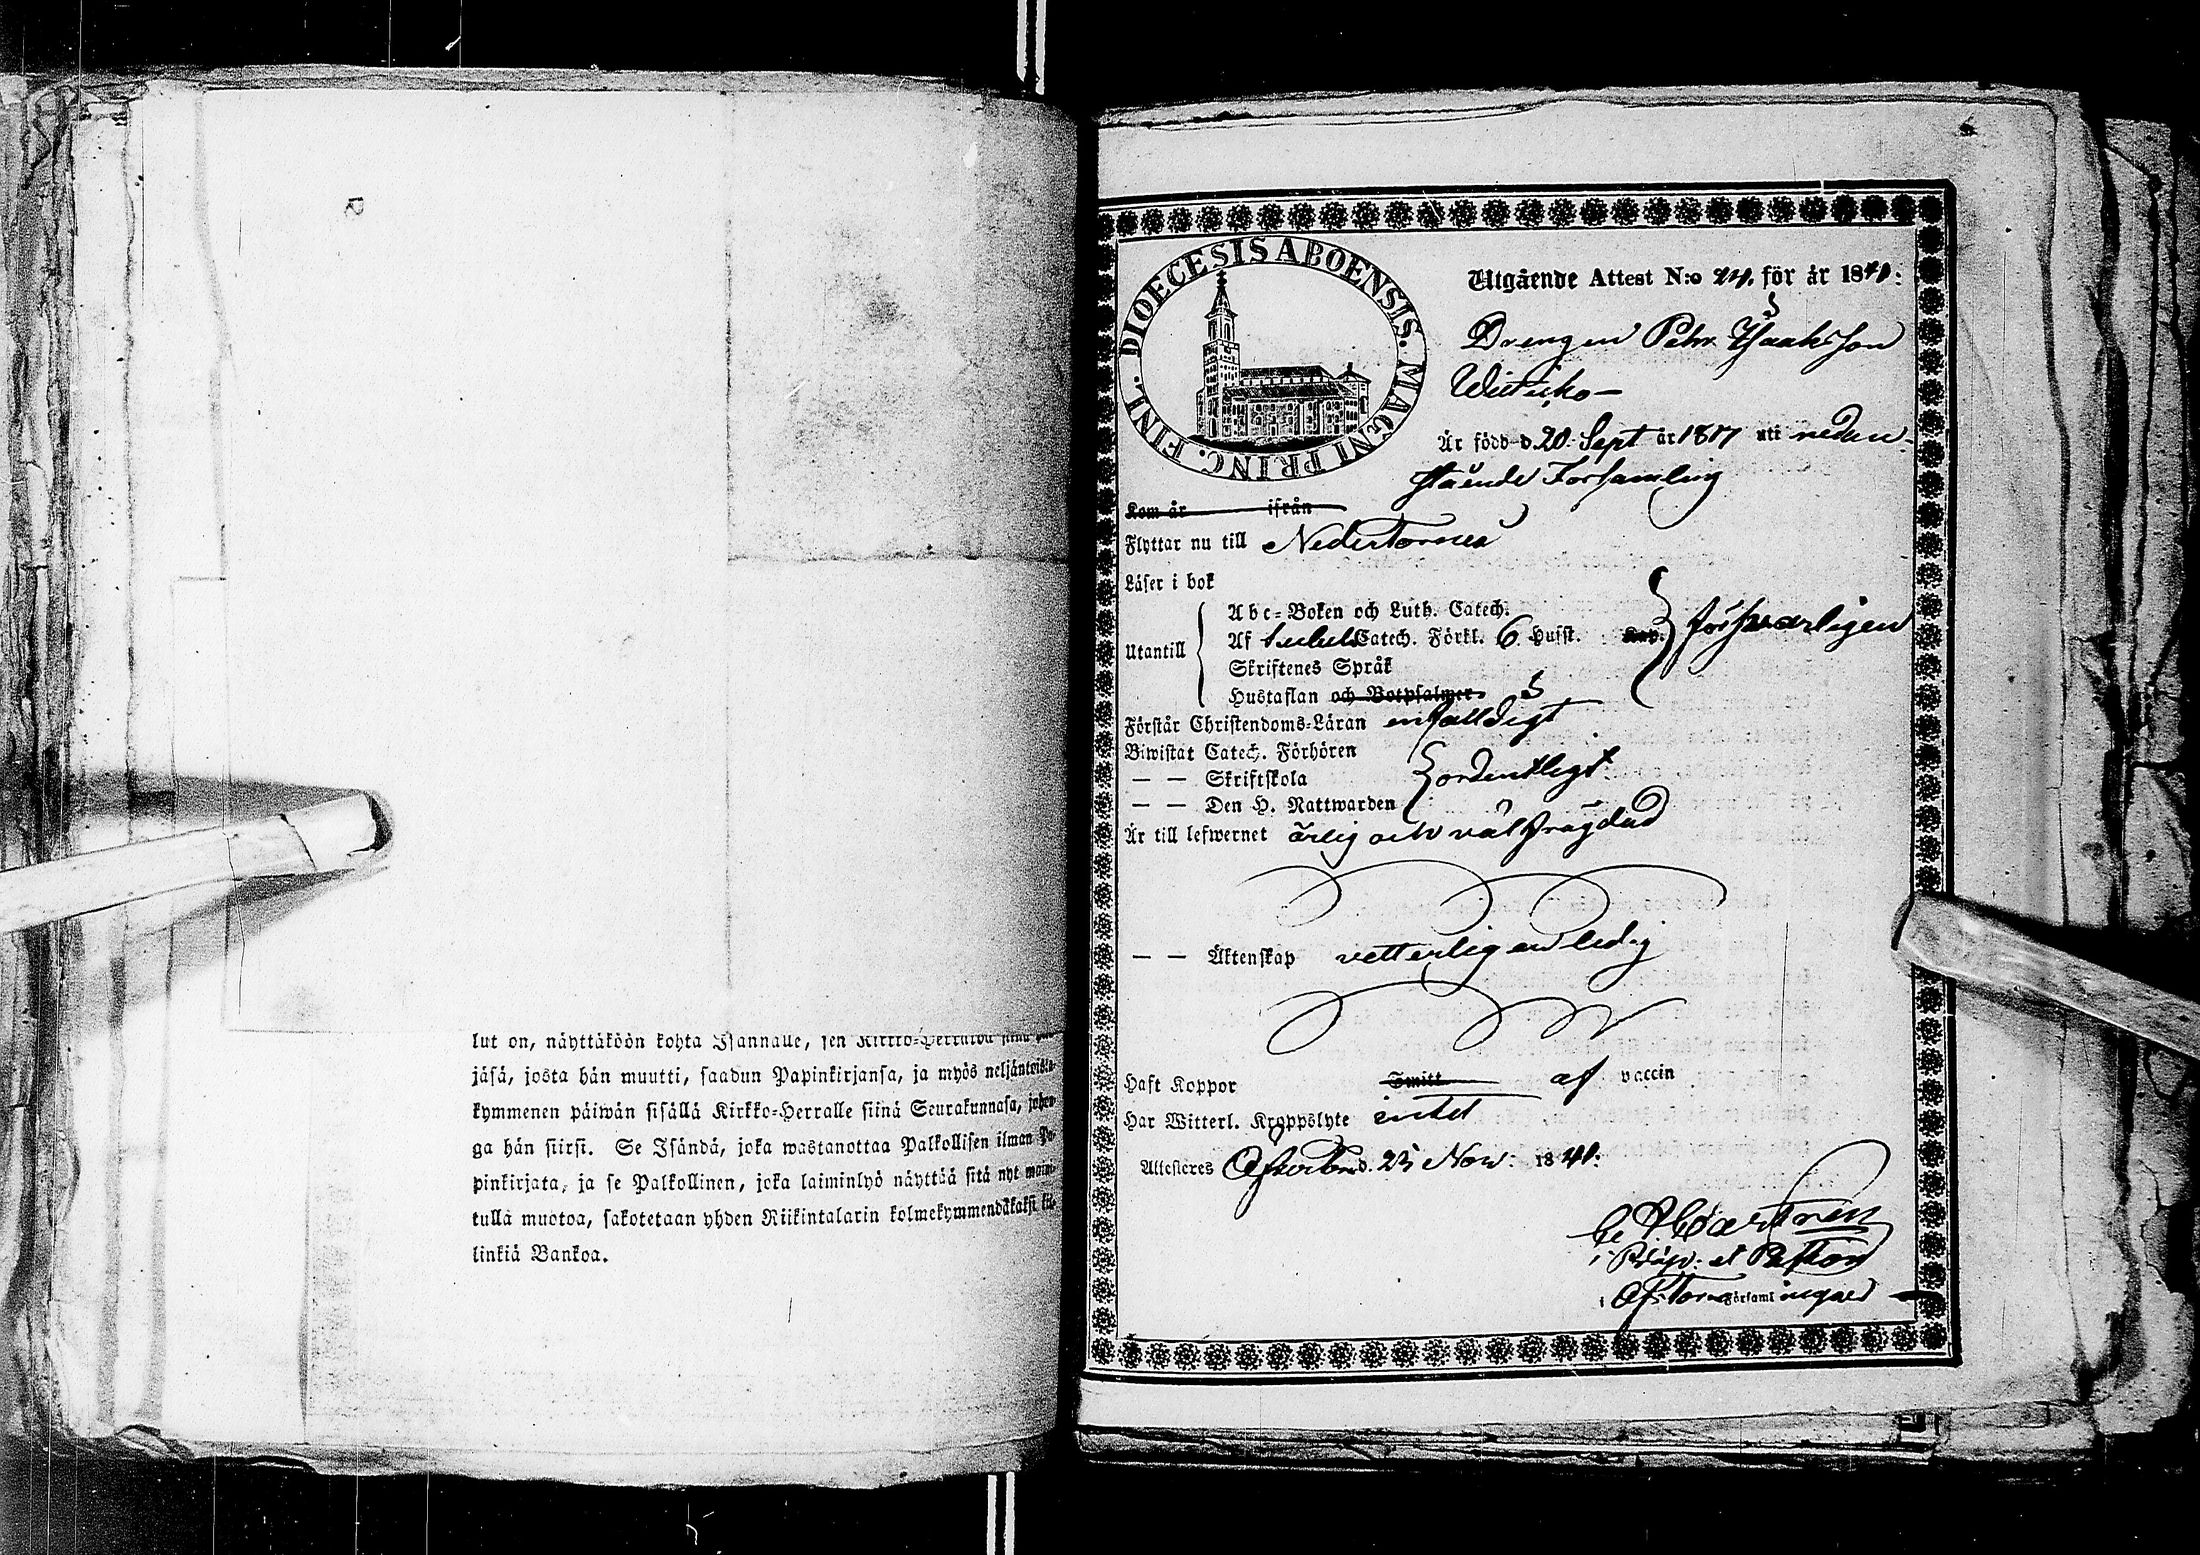 lut on, näyttäköön kohta Isännälle, sen Kirkko-Herralda siinä
jäsä, josta hän muutti, saadun Papinkirjansa, ja myös neljäntoista-
kymmenen päiwän sisällä Kirkko-Herralle siinä Seurakunnasa, johon-
ga hän siirsi. Se Isändä, joka wastanottaa Palkollisen ilman Pa-
pinkirjata, ja se Palkollinen, joka laiminlyö näyttää sitä nyt maini-
tulla muotoa, sakotetaan yhden Riikintalarin kolmekymmendäkaksi kil-
linkiä Bankoa.
DIOECESIS ABOENSIS. MAGNI PRINC. FINL.
Utgående Attest N:o 24. för år 1841.
Drengen Petr Isaaksson
Är född d 20 Sept år 1817 uti nedan-
stående Församling
Kom år ifrån
Flyttar nu till Nedertorneå
Läser i bok
Utantill
Abc-Boken och Luth. Catech.
Af Catech. Förkl. 6 Husst. Kap. försvarligen
Skriftenes Språk
Hustaflan och Botpsalmer
Förstår Christendoms-Läran enfalldigt
Biwistat Catech. Förhören
— — Skriftskola ordentligt
— — Den H. Nattwarden
Är till lefwernet ärlig och välfrägdad
— — Äktenskap vetterligen ledig
Haft Koppor Smitt af vaccin
Har Witterl. Kroppslyte intet
Attesteras Öfvertorn d. 25 Nov: 1841.
Präp: et Pastor
i Öf: Torneå Församl ingar